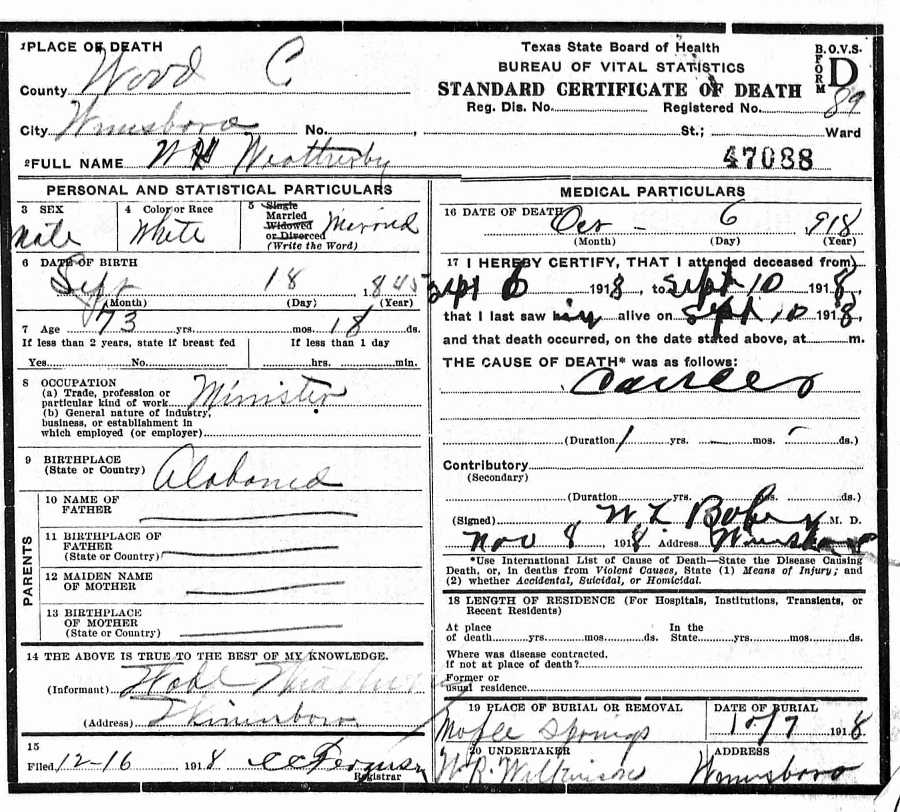 1PLACE OF DEATH
County Wood C
City Winnsboro No. , St.; Ward
2FULL NAME W H Weathersby
Texas State Board of Health
BUREAU OF VITAL STATISTICS
STANDARD CERTIFICATE OF DEATH
Reg. Dis. No. Registered No. 89
B.O.V.S.
FORM D
47088
PERSONAL AND STATISTICAL PARTICULARS
3 SEX
Male
4 Color or Race
White
5 Single
Married
Widowed
or Divorced
(Write the Word)
6 DATE OF BIRTH
Sept 18 1845
(Month) (Day) (Year)
7 Age 73 yrs. mos. 18 ds.
If less than 2 years, state if breast fed
Yes No.
If less than 1 day
hrs. min.
8 OCCUPATION
(a) Trade, profession or
particular kind of work Minister
(b) General nature of industry,
business, or establishment in
which employed (or employer)
9 BIRTHPLACE
(State or Country) Alabama
PARENTS
10 NAME OF
FATHER
11 BIRTHPLACE OF
FATHER
(State or Country)
12 MAIDEN NAME
OF MOTHER
13 BIRTHPLACE
OF MOTHER
(State or Country)
14 THE ABOVE IS TRUE TO THE BEST OF MY KNOWLEDGE.
(Informant)
(Address) Winnsboro
15
Filed 12-16 1918 CC Ferguson
Registrar
MEDICAL PARTICULARS
16 DATE OF DEATH Oct - 6 918
(Month) (Day) (Year)
17 I HEREBY CERTIFY, THAT I attended deceased from
Sept 6 1918, to Sept 10 1918,
that I last saw him alive on Sept 10 1918,
and that death occurred, on the date stated above, at m.
THE CAUSE OF DEATH* was as follows:
Cancer
(Duration 1 yrs. mos. ds.)
Contributory
(Secondary)
(Duration yrs. mos. ds.)
(Signed) W L M. D.
Nov 8 1918 Address Winnsboro
*Use International List of Cause of Death—State the Disease Causing
Death, or, in deaths from Violent Causes, State (1) Means of Injury; and
(2) whether Accidental, Suicidal, or Homicidal.
18 LENGTH OF RESIDENCE (For Hospitals, Institutions, Transients, or
Recent Residents)
At place
of death yrs. mos. ds.
In the
State yrs. mos. ds.
Where was disease contracted.
if not at place of death?
Former or
usual residence
19 PLACE OF BURIAL OR REMOVAL
Mople Springs
DATE OF BURIAL
10/7 1918
20 UNDERTAKER
W.R. Wilkinson
ADDRESS
Winnsboro